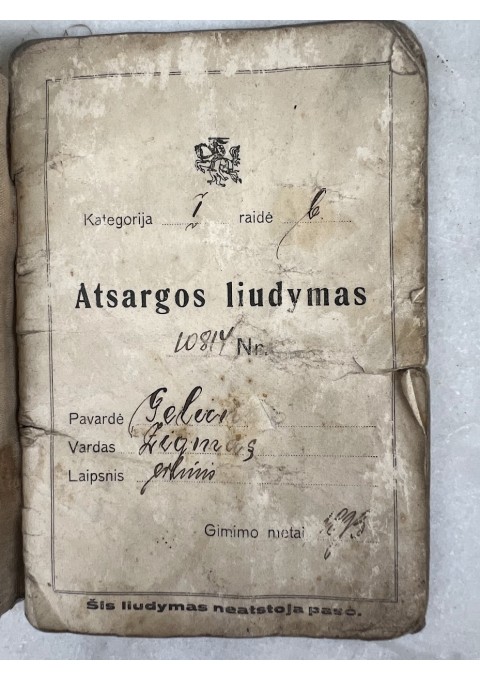 Kategorija I raidė b.
Atsargos liudymas
10814 Nr.
Pavardė
Vardas Zigmas
Laipsnis
Gimimo metai
Šis liudymas neatstoja paso.